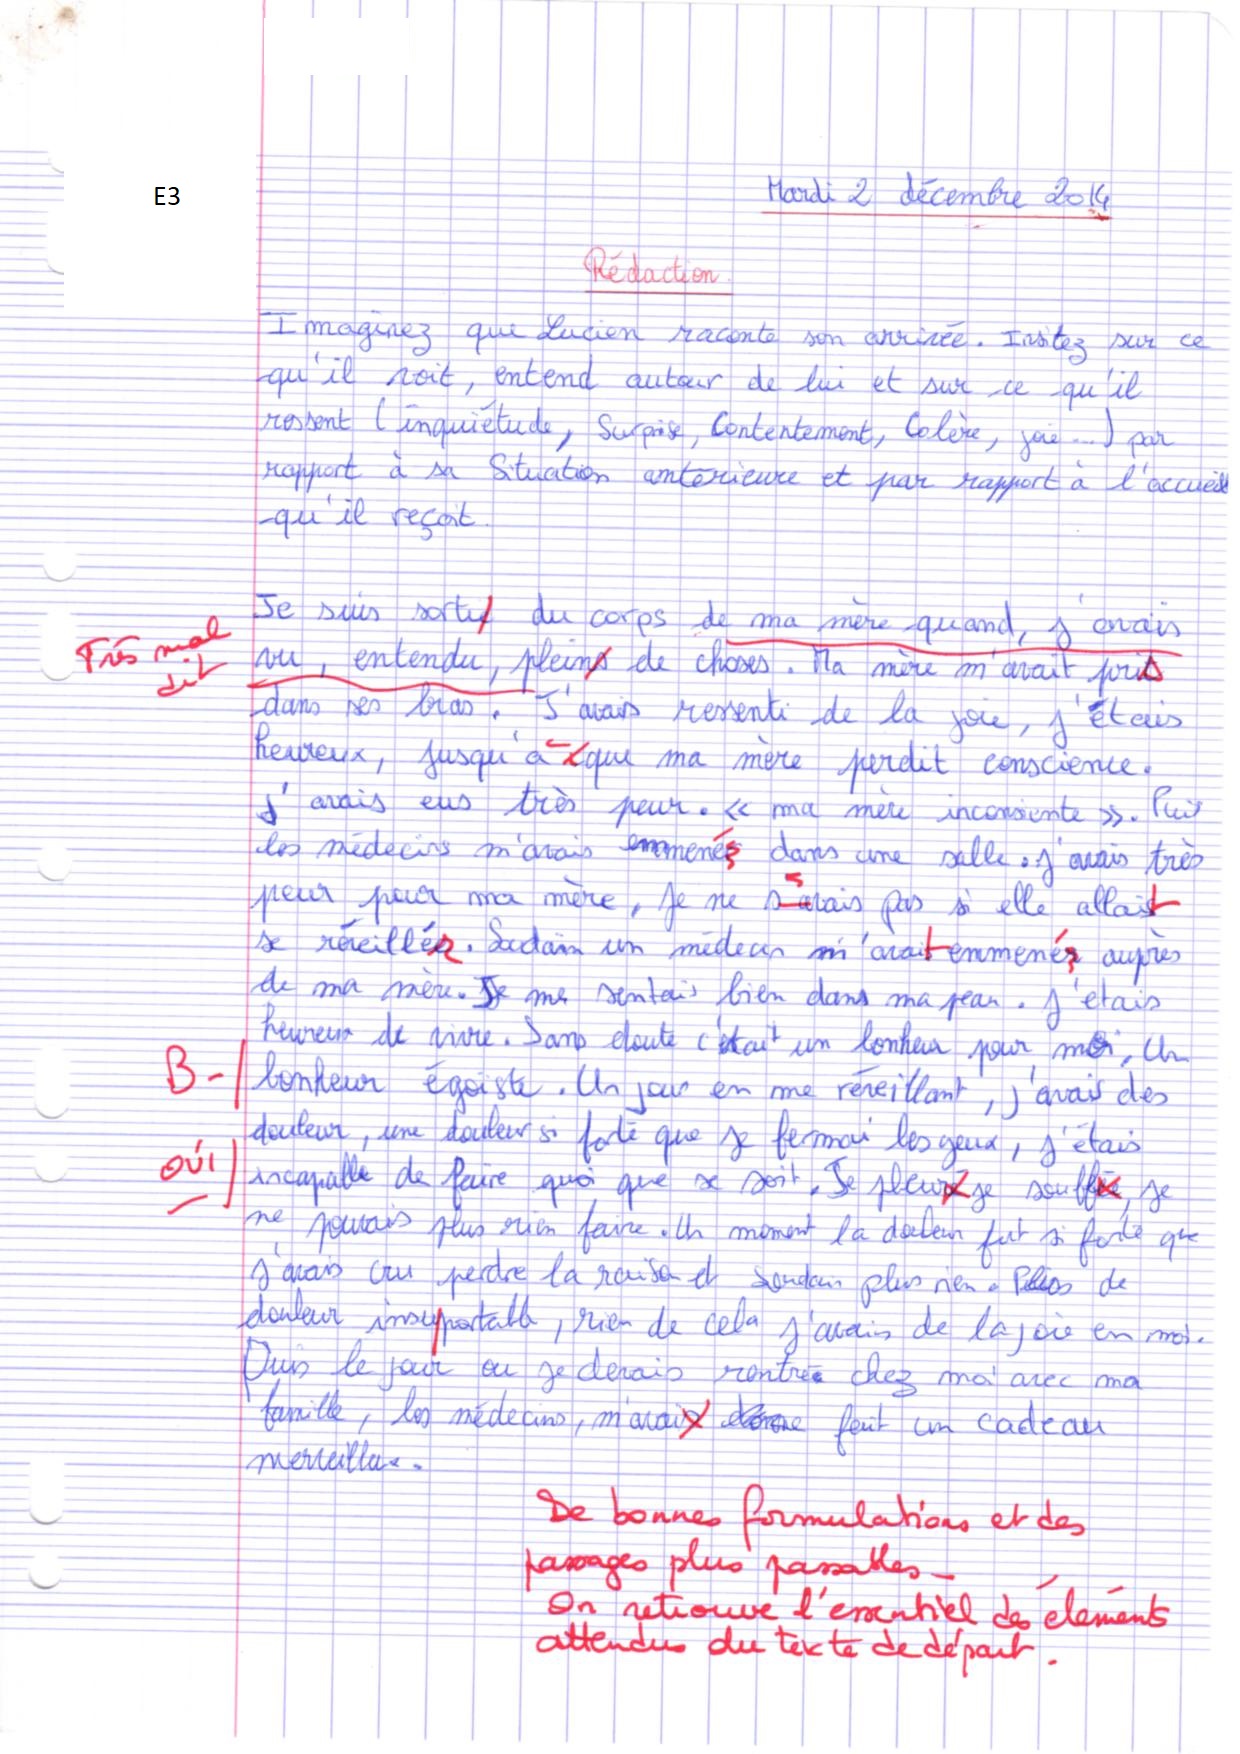 E3
Mardi 2 décembre 2014
Rédaction.
Imaginez que Lucien raconte son arrivée. Insitez sur ce
qu'il voit, entend autour de lui et sur ce qu'il
ressent (inquiétude, Surprise, Contentement, Colère, joie...) par
rapport à sa Situation antérieure et par rapport à l'accueil
qu'il reçoit.
Je suis sorty du corps de ma mère quand, j'avais
Très mal dit
vu, entendu, pleins de choses. Ma mère m'avait pris
dans ses bras. J'avais ressenti de la joie, j'étais
heureux, jusqu'à que ma mère perdit conscience.
J'avais eus très peur. « ma mère inconsiente ». Puis
les médecins m'avais emmenés dans une salle. j'avais très
peur pour ma mère, je ne savais pas si elle allait
se réveiller. Soudain un médecin m'avait emmenés auprès
de ma mère. Je me sentais bien dans ma peau. J'étais
heureux de vivre. Sans doute c'était un bonheur pour moi. Un
B-
bonheur égoïste. Un jour en me réveillant, j'avais des
douleur, une douleur si forte que je fermai les yeux, j'étais
OUI
incapable de faire quoi que se soit. Je pleurs je souffre, je
ne pouvais plus rien faire. Un moment la douleur fut si forte que
j'avais cru perdre la raison et soudain plus rien. Plus de
douleur insupportable, rien de cela j'avais de la joie en moi.
Puis le jour ou je devais rentrée chez moi avec ma
famille, les médecins, m'avais fait un cadeau
merveilleux.
De bonnes formulations et des
passages plus passables -
On retrouve l'essentiel des éléments
attendus du texte de départ.